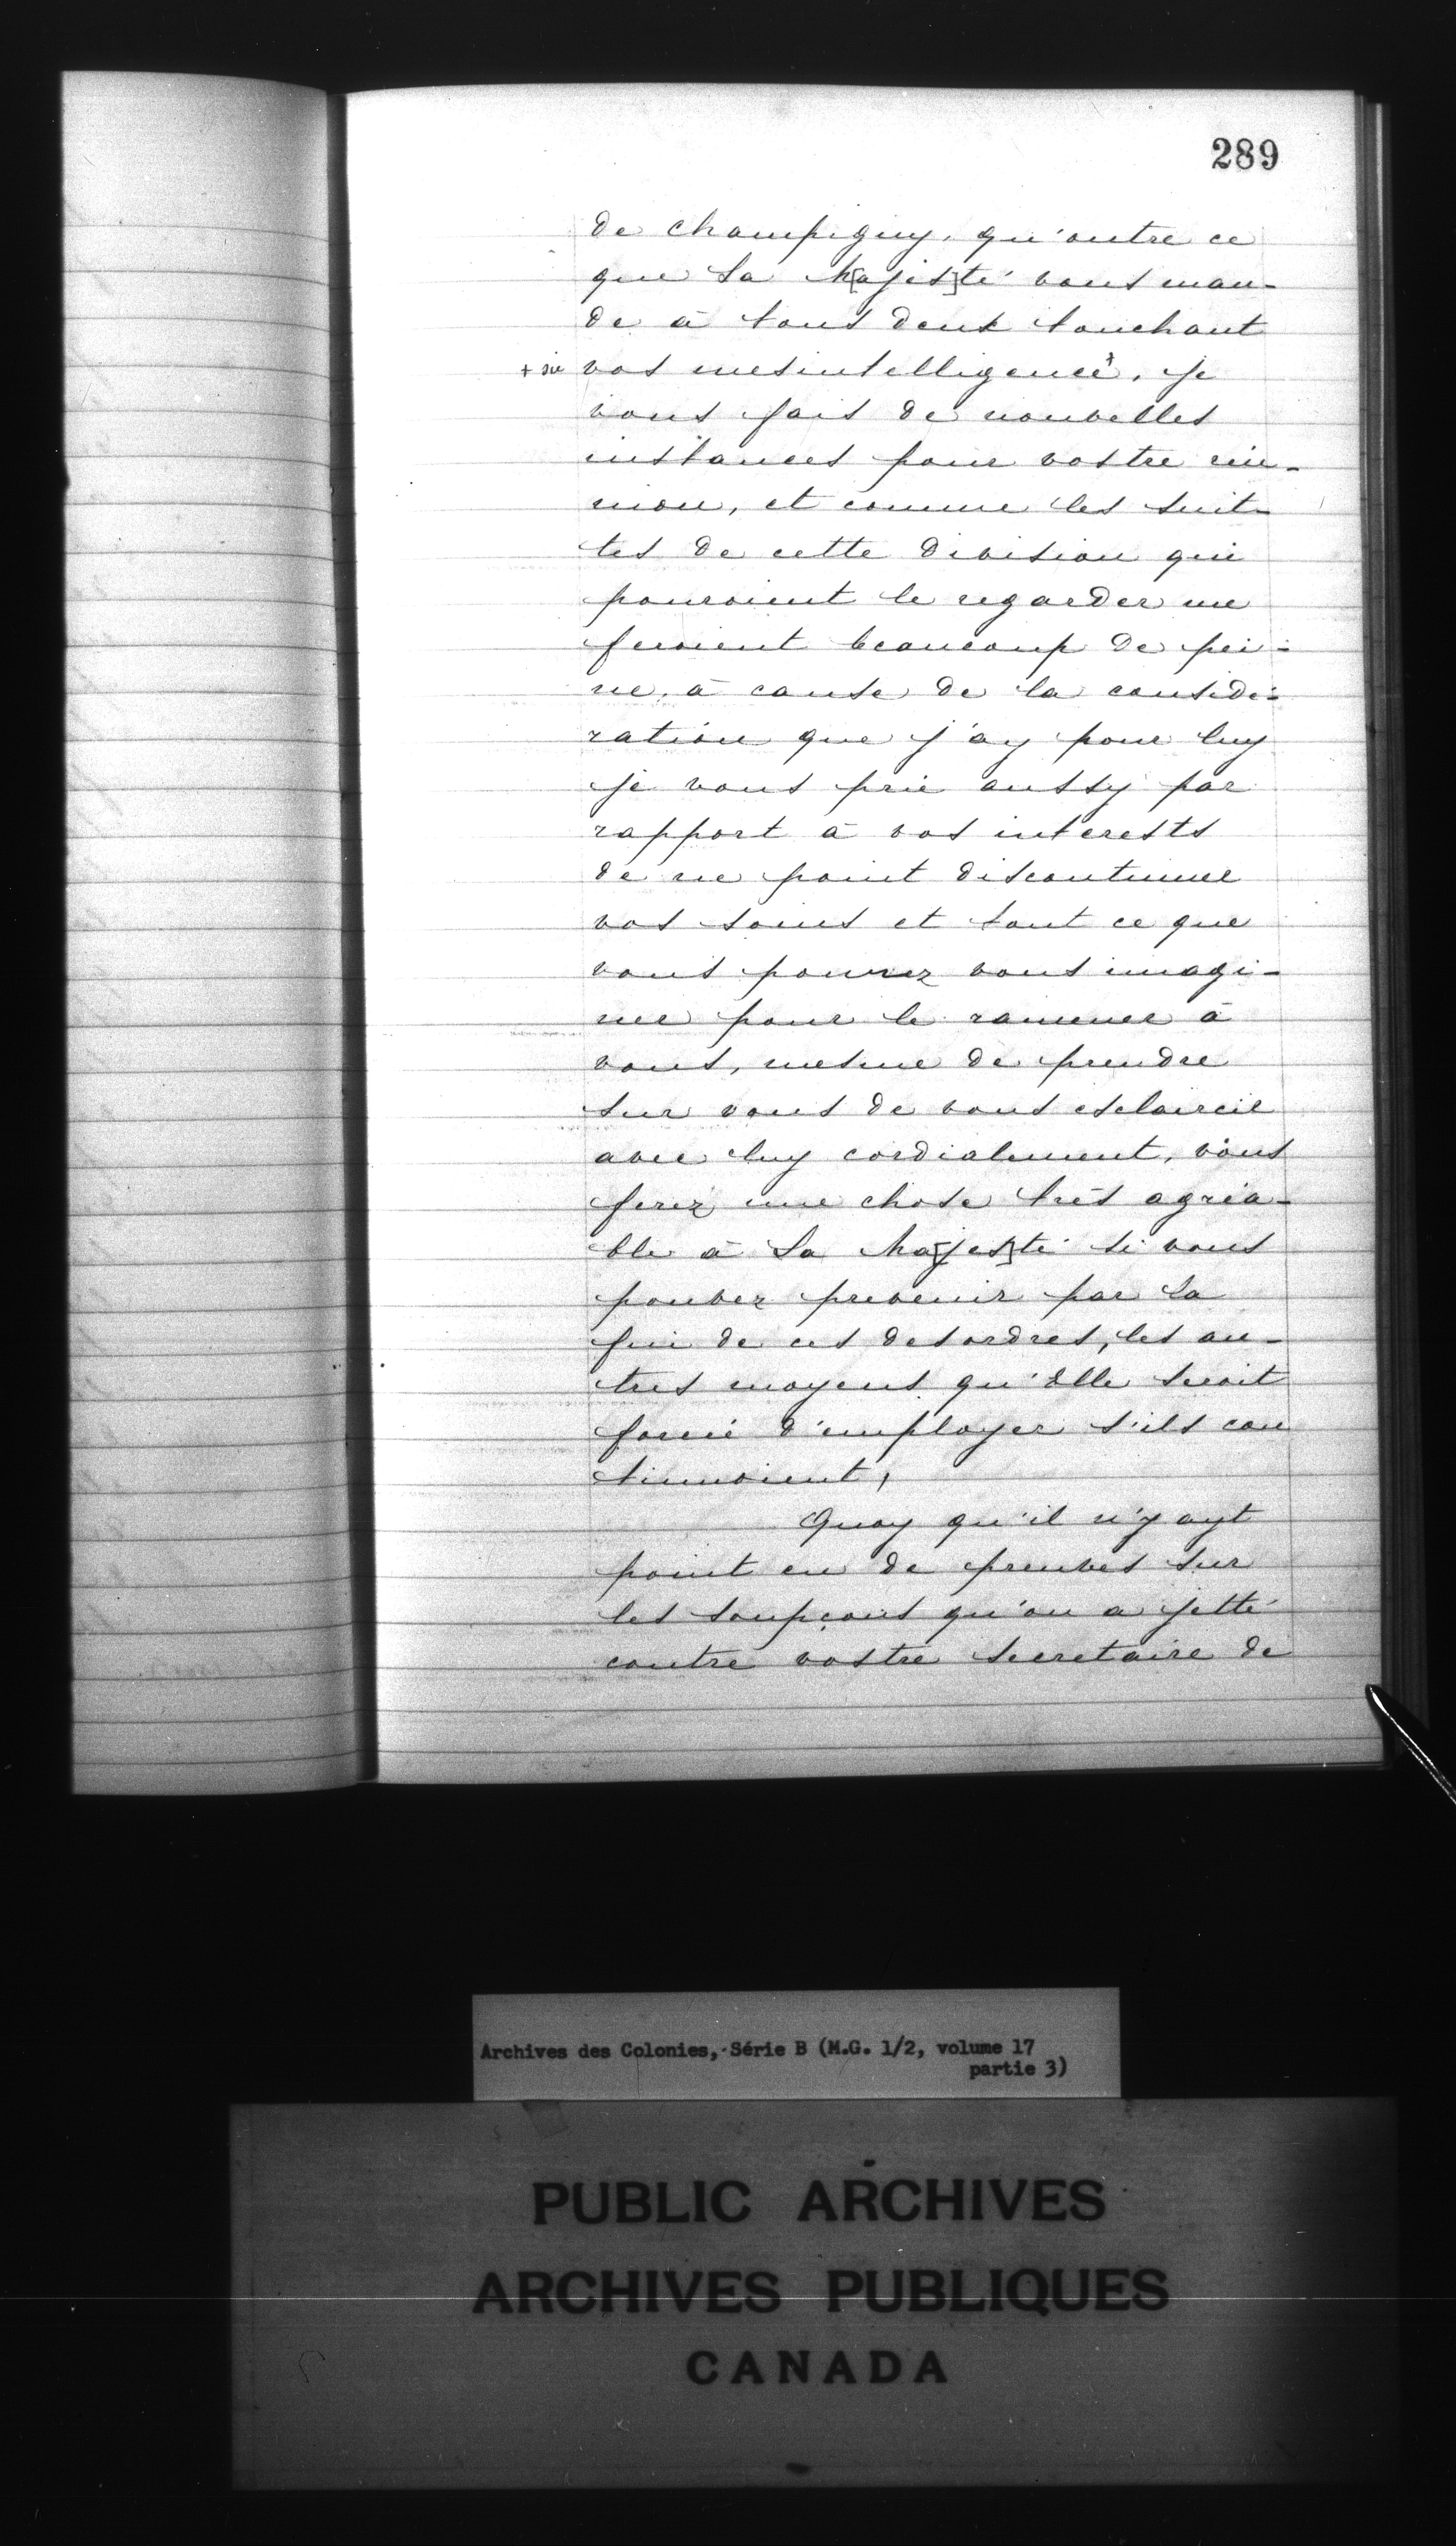 289
de champigny, qu'outre ce
que Sa M[ajes]té vous man-
de à tous deux touchant
+ sic vos mesintelligence+, je
vous fais de nouvelles
instances pour vostre reü-
nion, et comme les suit-
tes de cette division qui
pouroient le regarder me
feroient beaucoup de pei-
ne, à cause de la conside-
ration que j'ay pour luy
je vous prie aussy par
rapport à vos interests
de ne point discontinuer
vos soins et tout ce que
vous pourrez vous imagi-
ner pour le ramener à
vous, mesme de prendre
sur vous de vous esclaircir
avec luy cordialement, vous
ferez une chose très agréa-
ble à Sa Ma[jes]té si vous
pouvez prevenir par la
fin de ces desordres, les au-
tres moyens qu'Elle seroit
forcée d'employer s'ils con
tinuoient,
Quoy qu'il n'y ayt
point eu de preuves sur
les soupçons qu'on a jetté
contre vostre secretaire de
Archives des Colonies, Série B (M.G. 1/2, volume 17
partie 3)
PUBLIC ARCHIVES
ARCHIVES PUBLIQUES
CANADA